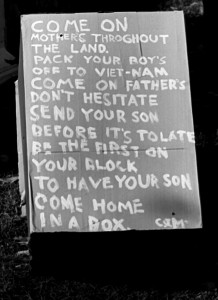 COME ON
MOTHERS THROGHOUT
THE LAND.
PACK YOUR BOY'S
OFF TO VIET-NAM
COME ON FATHER'S
DON'T HESITATE
SEND YOUR SON
BEFORE IT'S TO LATE
BE THE FIRST ON
YOUR BLOCK
TO HAVE YOUR SON
COME HOME
IN A BOX.